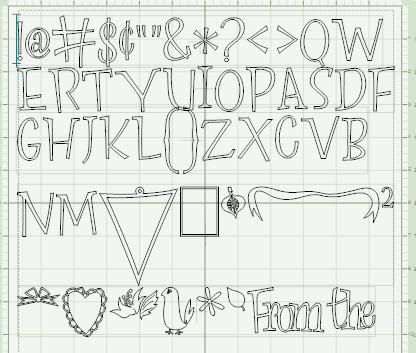 !@#$¢""&*?<>QW
ERTYUIOPASDF
GHJKL{}ZXCVB
NM 2
From the